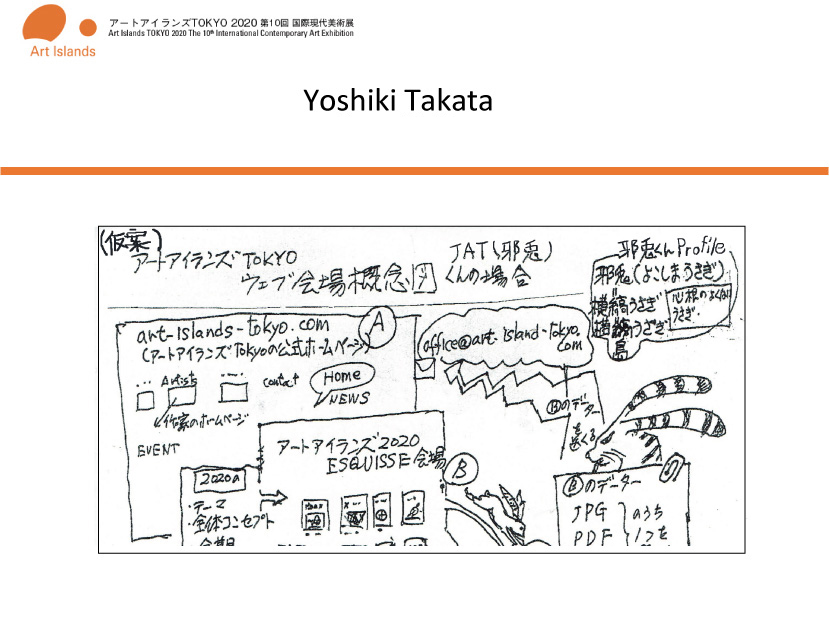 アートアイランズTOKYO 2020 第10回 国際現代美術展
Art Islands TOKYO 2020 The 10th International Contemporary Art Exhibition
Art Islands
Yoshiki Takata
(仮案)
アートアイランズTOKYO
ウェブ会場概念図
JAT(邪兎)
くんの場合
邪兎くんProfile
邪兎(よこしまうさぎ)
横縞うさぎ
横縞うさぎ
島
心根の
うさぎ.
art-islands-tokyo.com
(アートアイランズTokyoの公式ホームページ)
A
office@art-island-tokyo.
com
... Artists ... contact Home
NEWS
作家のホームページ
EVENT
Ⓑのデーター
を
送くる
アートアイランズ2020
ESQUISSE会場
B
2020a
・テーマ
・全体コンセプト
会期
Ⓑのデーター
JPG
PDF
のうち
1つを